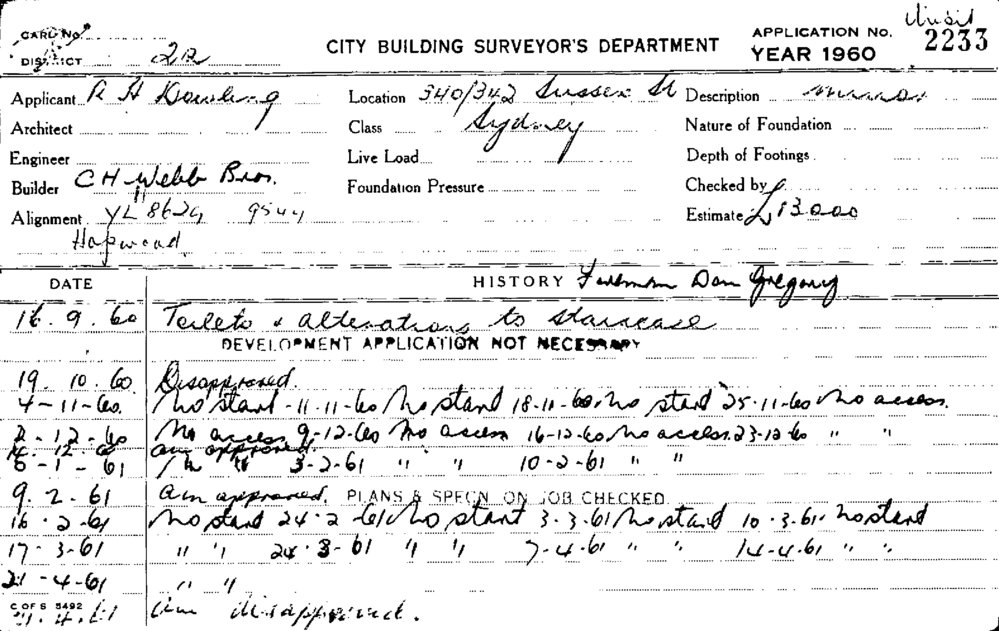 CARD No.
DISTRICT 2a
CITY BUILDING SURVEYOR'S DEPARTMENT
APPLICATION No. 2233
YEAR 1960
Applicant R H Dowling
Location 340/342 Sussex St
Description minor
Architect
Class Sydney
Nature of Foundation
Engineer
Live Load
Depth of Footings
Builder C H Webb Bros.
Foundation Pressure
Checked by
Alignment YL 8629 9544
Estimate £13000
Hopwood
DATE
HISTORY Foreman Dan Gregory
16.9.60 Toilets & alterations to staircase
DEVELOPMENT APPLICATION NOT NECESSARY
19.10.60 Disapproved.
4-11-60. No start-11-11-60 No start 18-11-60. No start 25-11-60 No access.
2-12-60 No access 9-12-60 No access 16-12-60. No access. 23-12-60 " "
12.60 am approved.
6-1-61 3-2-61 " " 10-2-61 " "
9.2.61 am approved. PLANS & SPECN ON JOB CHECKED
16.2.61 No start 24-2-61. No start 3-3-61 No start 10-3-61. No start
17-3-61 " " 24-3-61 " " 7-4-61 " " 14-4-61 " "
21-4-61 " "
C OF S 5492
4.61 am disapproved.